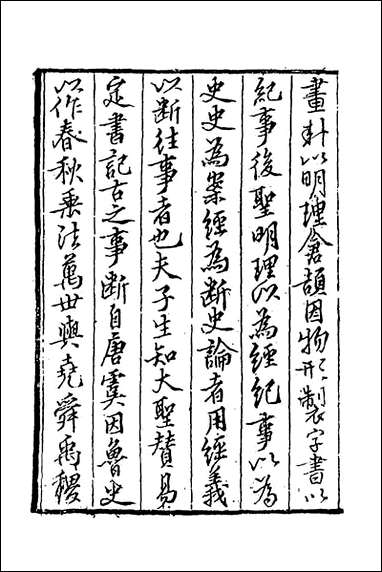 畫卦以明理倉頡因物形製字書以
紀事後聖明理以為經紀事以為
史史為案經為斷史論者用經義
以斷往事者也夫子生知大聖贊易
定書記古之事斷自唐虞因魯史
以作春秋垂法萬世與堯舜禹稷